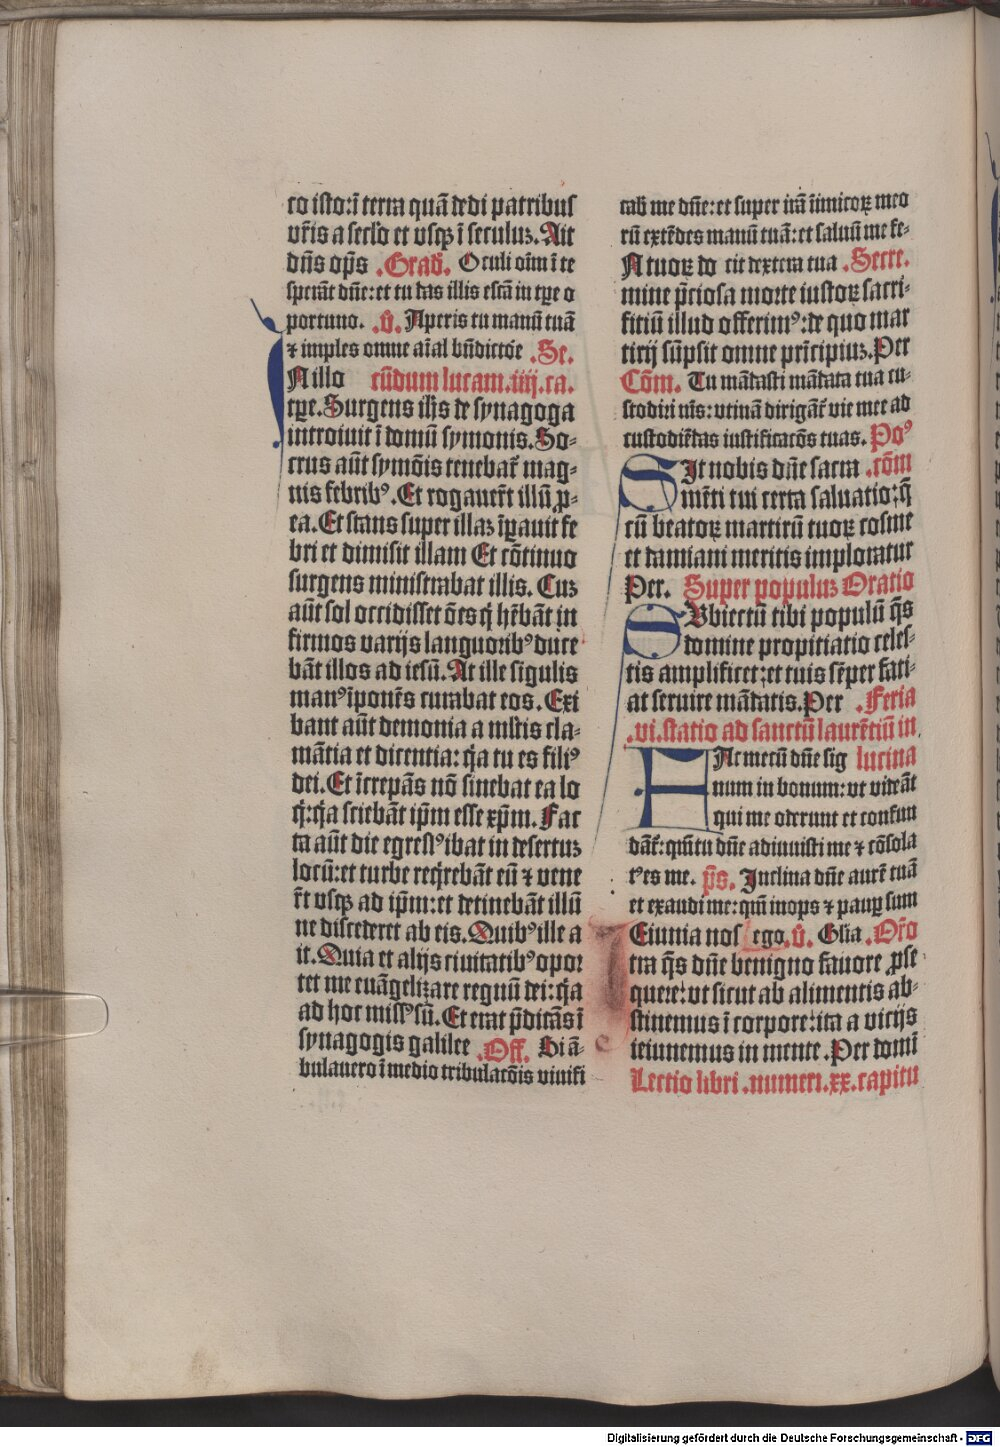 co isto: ī terra quā dedi patribus
vr̄is a seclo et vsqꝫ ī seculuꝫ. Ait
dn̄s op̄s .Grad̄. Oculi oīm ī te
sperāt dn̄e: et tu das illis escā in tꝑe o
portuno. .v̄. Aperis tu manū tuā
⁊ imples omne aīal bn̄dictōe .Se.
IN illo cūdum lucam .iiij. ca.
tꝑe. Surgens ih̄s de synagoga
introiuit ī domū symonis. So⸗
crus aūt symōis tenebat᷑ mag⸗
nis febribꝰ. Et rogauer̄t illū ꝓ⸗
ea. Et stans super illaꝫ īꝑauit fe
bri et dimisit illam Et cōtinuo
surgens ministrabat illis. Cuꝫ
aūt sol occidisset ōes q̄ hēbāt in
firmos varijs languoribꝰ duce
bāt illos ad iesū. At ille sīgulis
manꝰ īponēs curabat eos. Exi
bant aūt demonia a ml̄tis cla⸗
mātia et dicentia: q̄a tu es filiꝰ
dei. Et īcrepās nō sinebat ea lo
q̄: q̄a sciebāt ip̄m esse xp̄m. Fac
ta aūt die egressꝰ ibat in desertuꝫ
locū: et turbe req̄rebāt eū ⁊ vene
r̄t vsqꝫ ad ip̄m: et detinebāt illū
ne discederet ab eis. Quibꝰ ille a
it. Quia et alijs ciuitatibꝰ opor
tet me euāgelizare regnū dei: q̄a
ad hoc missꝰ sū. Et erat p̄dicās ī
synagogis galilee .Off. Si ā⸗
bulauero ī medio tribulacōis viuifi
cab me dn̄e: et super irā īimicoꝝ meo
rū extēdes manū tuā: et saluū me fe⸗
IN tuoꝝ do cit dextera tua .Secre.
mine p̄ciosa morte iustoꝝ sacri⸗
ficiū illud offerimꝰ: de quo mar
tirij sūpsit omne prīcipiuꝫ. Per
Cōm. Tu mādasti mādata tua cu⸗
stodiri nīs: vtinā dirigāt᷑ vie mee ad
custodiēdas iustificacōs tuas. Poꝰ
SIt nobis dn̄e sacra .cōm
mēti tui certa saluatio: q̄
cū beatoꝝ martirū tuoꝝ cosme
et damiani meritis imploratur
Per. Super populuꝫ Oratio
SVbiectū tibi populū q̄s
domine propitiatio celes⸗
tis amplificet: et tuis sēper faci⸗
at seruire mādatis. Per .Feria
.vi. statio ad sanctū laurētiū in
FAc mecū dn̄e sig lucina
num in bonum: vt videāt
qui me oderunt et confun
dāt᷑: qm̄ tu dn̄e adiuuisti me ⁊ cōsola
tꝰ es me. p̄s. Inclina dn̄e aurē tuā
et exaudi me: qm̄ inops ⁊ pauꝑ sum
IEiunia nos ego. v̄. Gl̄ia .Or̄o
tra q̄s dn̄e benigno fauore ꝓse
quere: vt sicut ab alimentis ab⸗
stinemus ī corpore: ita a vicijs
ieiunemus in mente. Per domī
Lectio libri .numeri. xx. capitu
Digitalisierung gefördert durch die Deutsche Forschungsgemeinschaft - DFG